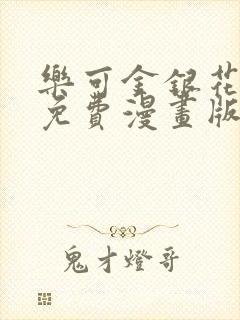 樂可金銀花
免費漫畫版
鬼才燈哥